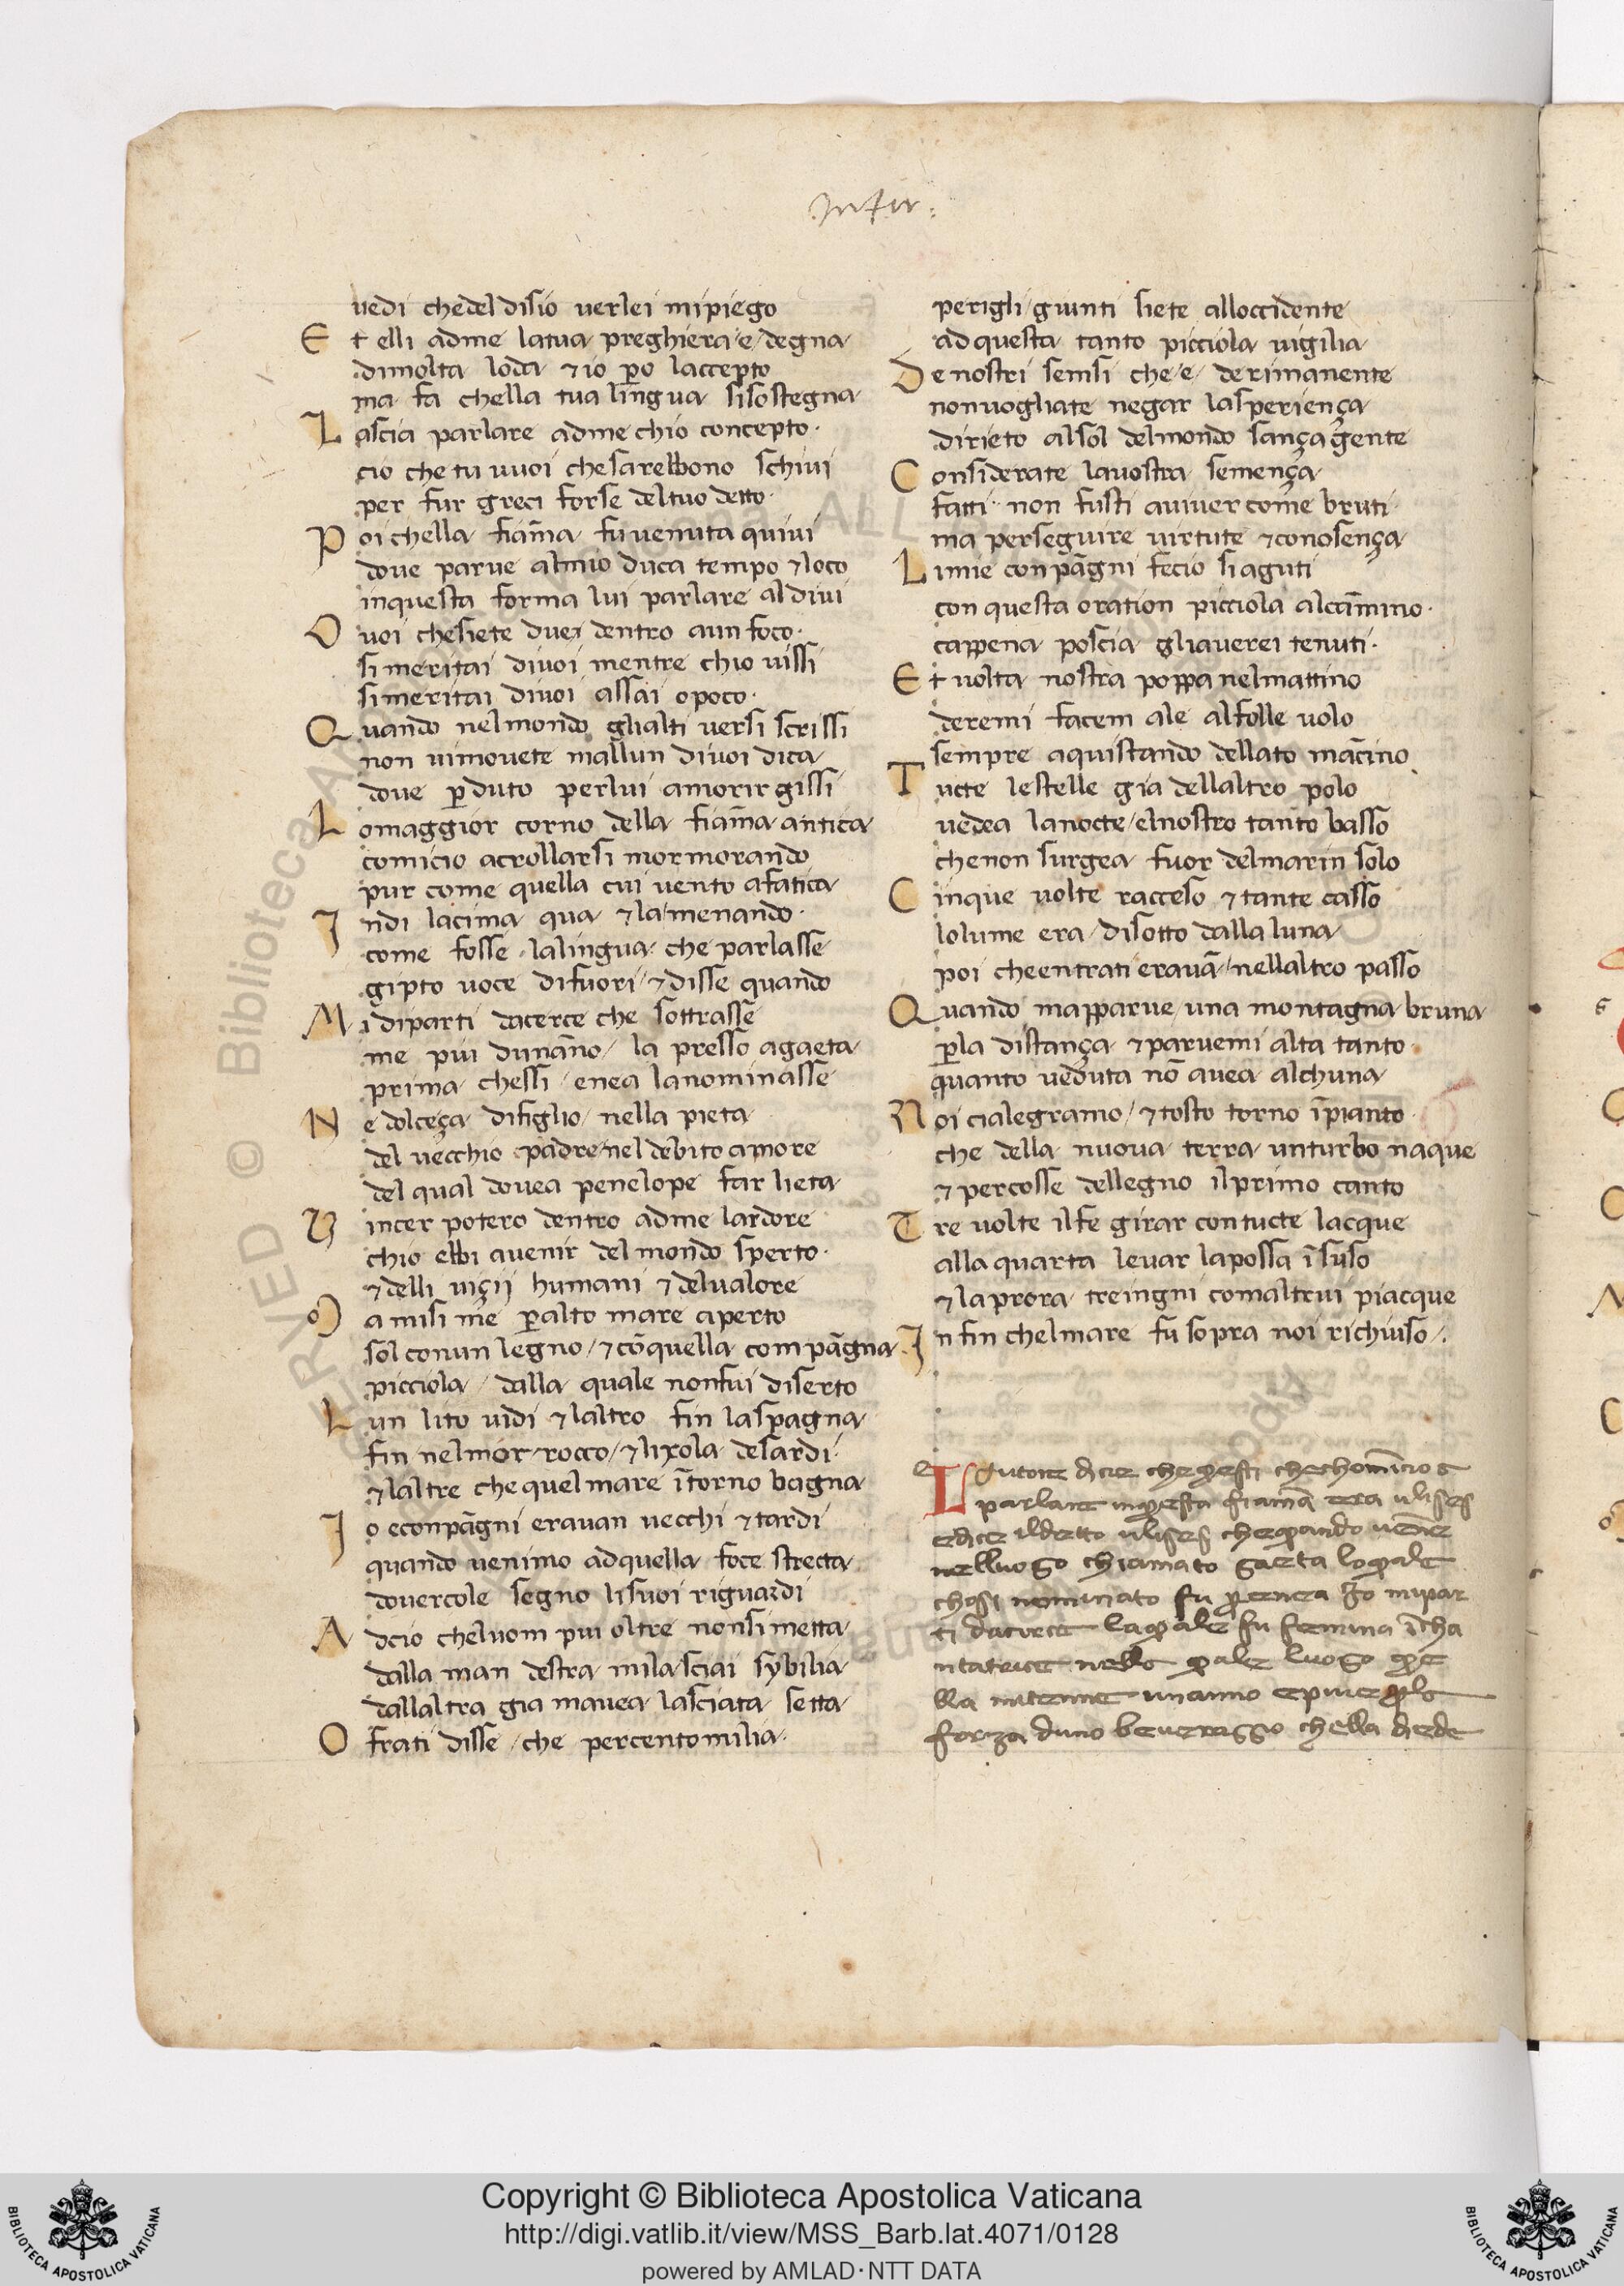 Infer:
vedi chedel disio verlei mipiego
Et elli adme latua preghiera e degna
dimolta loda ⁊ io ꝑo laccepto
ma fa chella tua lingua sisostegna
Lascia parlare adme chio concepto.
cio che tu vuoi chesarebbono schivi
per fur greci forse deltuo detto.
Poi chella fiãma fu venuta quivi
dove parve almio duca tempo ⁊ loco
inquesta forma lui parlare aldivi
O voi chesiete duei dentro aun foco.
si meritai divoi mentre chio vissi
simeritai divoi assai opoco.
Quando nelmondo glialti versi scrissi
non vimovete mallun divoi dica
dove ꝑduto perlui amorir gissi
Lomaggior corno della fiãma antica
comicio acrollarsi mormorando
pur come quella cui vento afatica
Indi lacima qua ⁊ la menando.
come fosse lalingua che parlasse
gipto voce difuori ⁊ disse quando
Mi diparti dacerce che sottrasse
me piu dunãno / la presso agaeta
prima chessi enea lanominasse
Ne dolceça difiglio / nella pieta
del vecchio padre nel debito amore
del qual dovea penelope far lieta
Vincer potero dentro adme lardore
chio ebbi avenir del mondo sperto.
⁊ delli viçij humani ⁊ delvalore
Ma misi me ꝑalto mare aperto
sol conun legno / ⁊ cõquella compãgna
picciola / dalla quale nonfui diserto
Lun lito vidi ⁊ laltro fin laspagna
fin nelmorrocco / ⁊ lixola desardi.
⁊ laltre chequel mare ĩtorno bagna
Io econpãgni eravan vecchi ⁊ tardi
quando venimo adquella foce strecta
dovercole segno lisuoi riguardi
Adcio cheluom piu oltre nonsi metta
dalla man destra milasciai sybilia
dallaltra gia mavea lasciata setta
O frati disse / che percentomilia.
perigli / giunti siete alloccidente
ad questa tanto picciola vigilia
De nostri sensi che e derimanente
nonvogliate negar lasperiença
dirieto alsol delmondo sança gente
Considerate lavostra semença
fatti non fusti aviver come bruti
ma perseguire virtute ⁊ conosença
Limie conpãgni fecio si aguti
con questa oration picciola alcãmino.
cappena poscia gliaverei tenuti.
Et volta nostra poppa nelmattino
deremi facem ale alfolle volo
sempre aquistando dellato mãcino
Tucte lestelle gia dellaltro polo
vedea lanocte / elnostro tanto basso
chenon surgea fuor delmarin solo
Cinque volte racceso ⁊ tante casso
lolume era disotto dalla luna
poi cheentrati eravã nellaltro passo
Quando mapparve una montagna bruna
ꝑla distança ⁊ parvemi alta tanto
quanto veduta nõ avea alchuna
Noi cialegramo / ⁊ tosto torno ĩpianto
che della nuova terra unturbo naque
⁊ percosse dellegno ilprimo canto
Tre volte ilfe girar contucte lacque
alla quarta levar lapossa ĩsuso
⁊ laprora treingni comaltrui piacque
In fin chelmare fu sopra noi richiuso.
parlare fiamã era ulises
edice ildetto ulises
nelluogo chiamato gaeta
nominato fu
fu femina ĩcha
luogo
forza duno beveraggio chella diede
Copyright © Biblioteca Apostolica Vaticana
http://digi.vatlib.it/view/MSS_Barb.lat.4071/0128
powered by AMLAD·NTT DATA